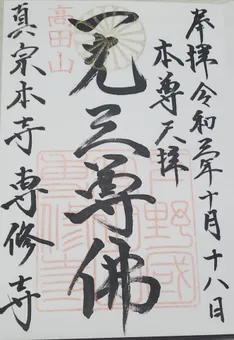 奉拝令和三年十月十八日
本尊天拝
一光三尊佛
高田山
真宗本寺専修寺